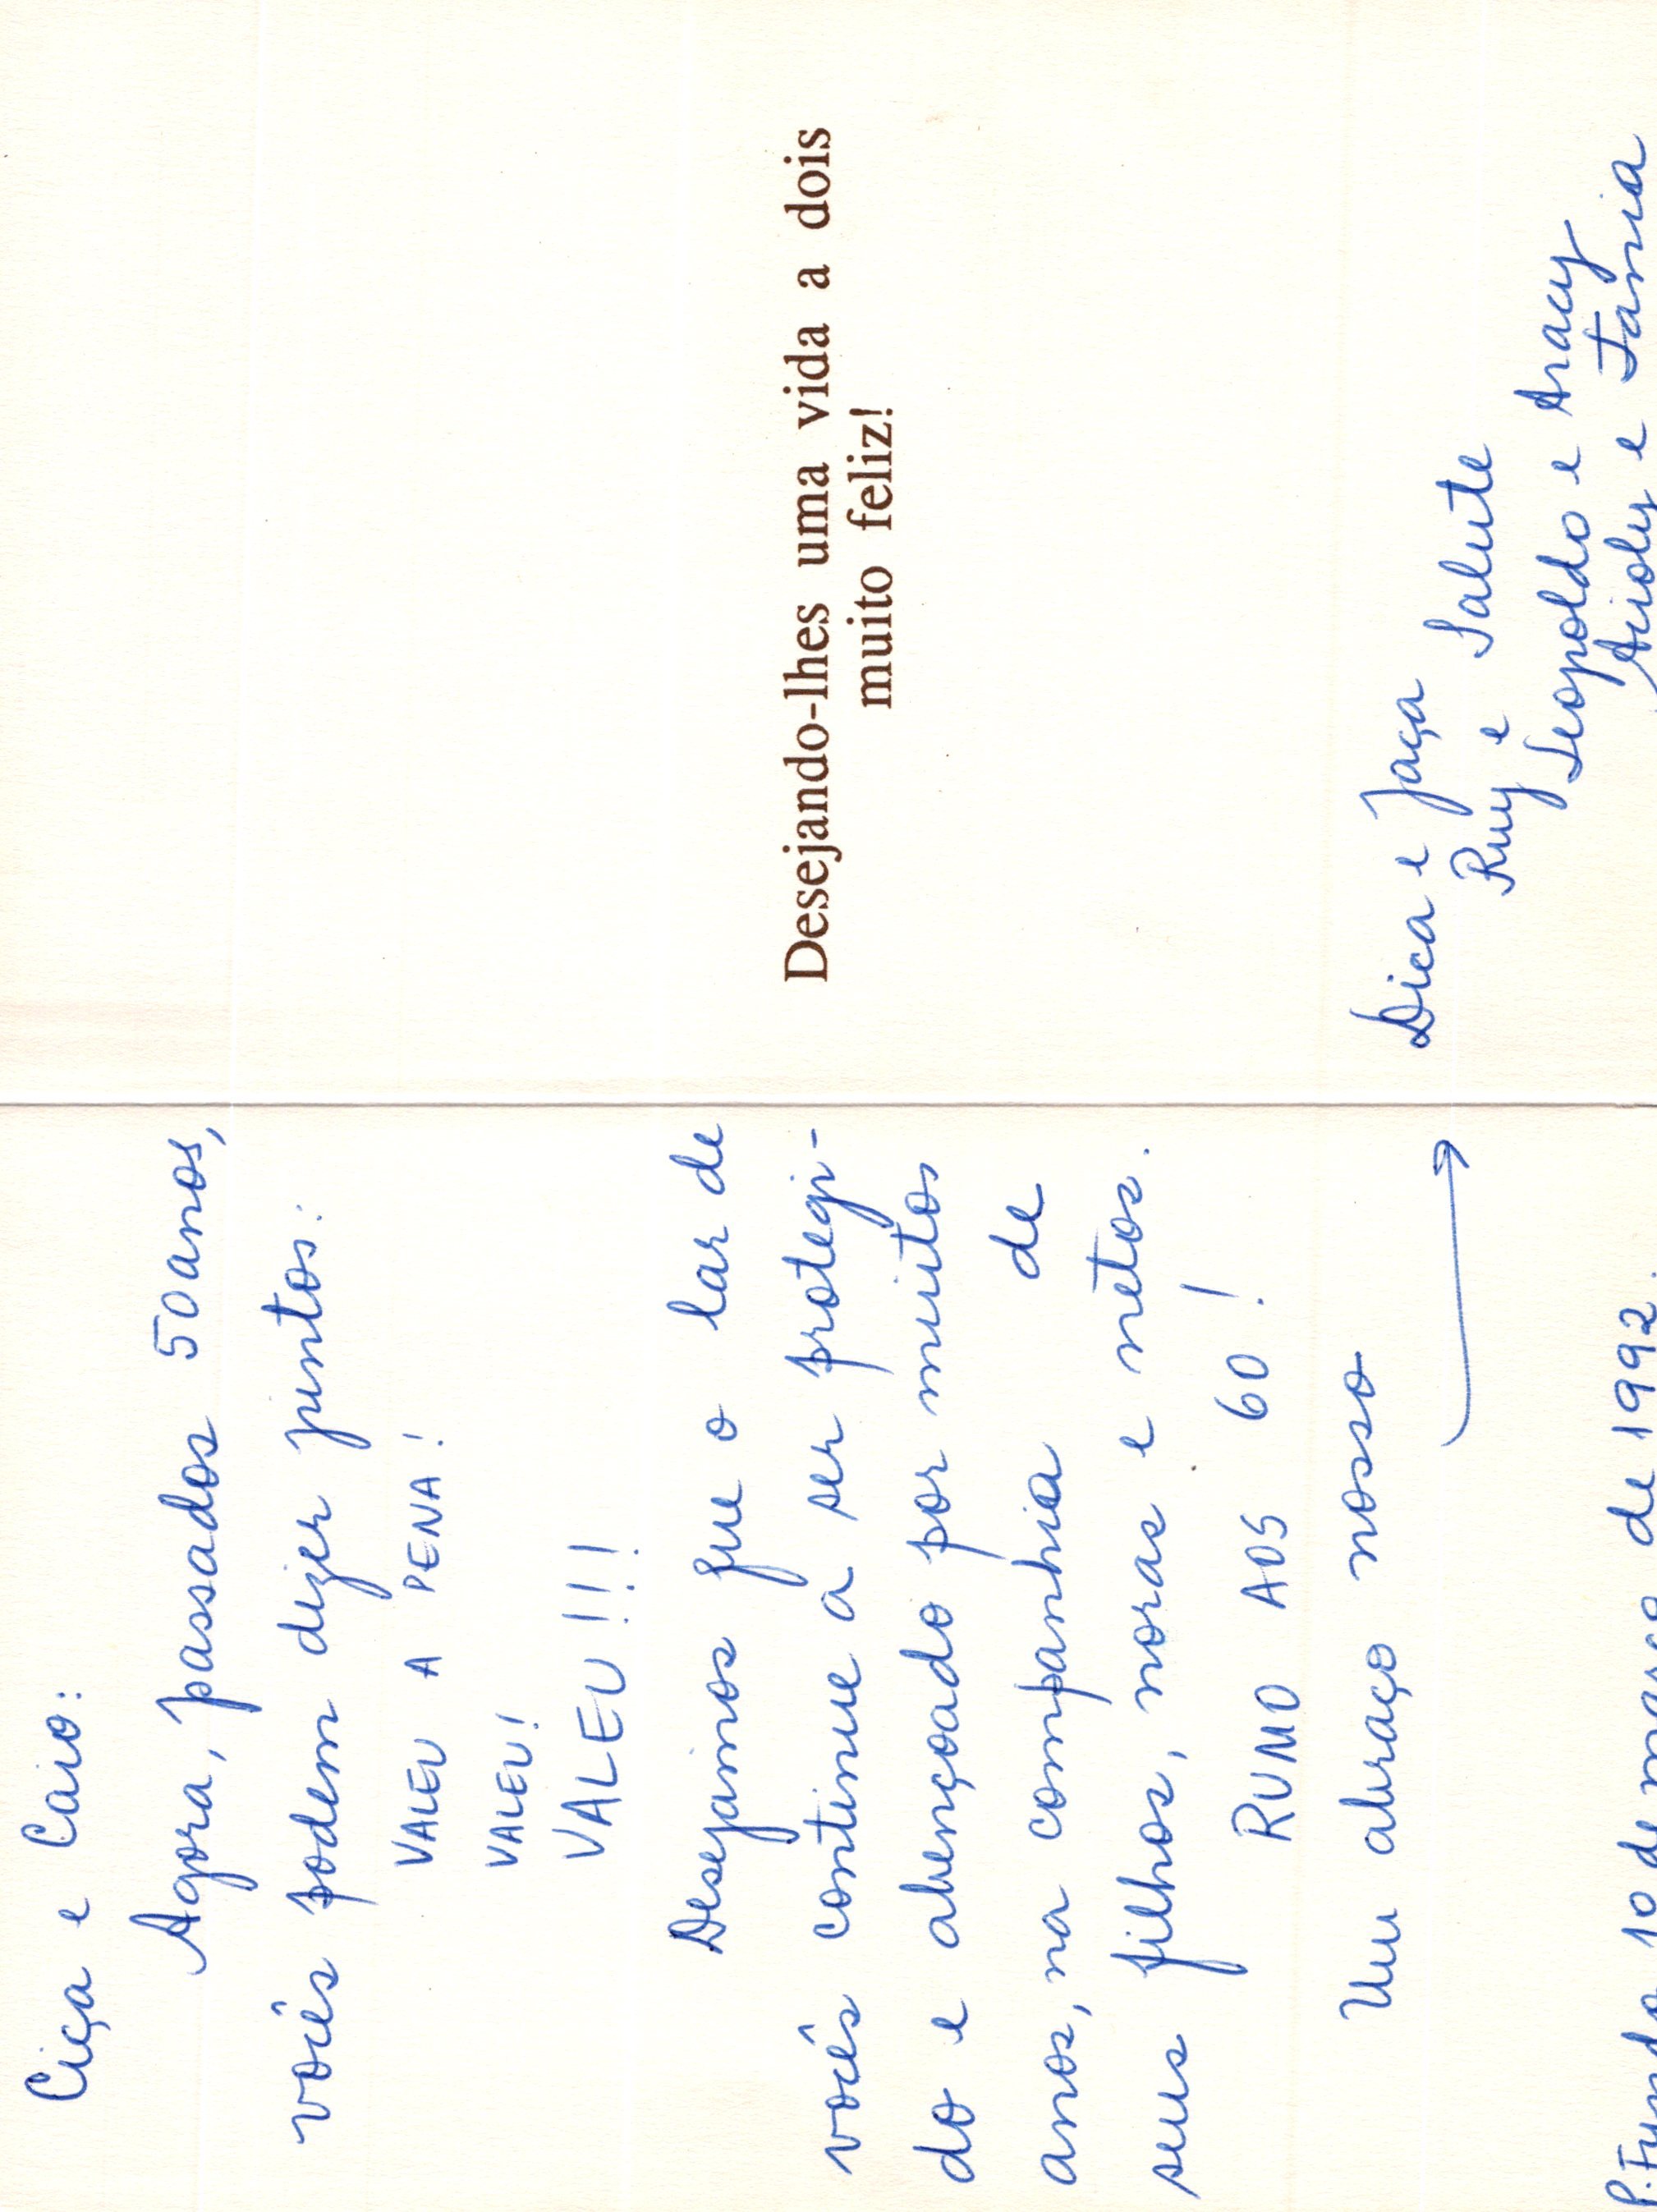 Ciça e Caio:
Agora, passados 50 anos,
vocês podem dizer juntos:
VALEU A PENA!
VALEU!
VALEU!!!
Desejamos que o lar de
vocês continue a ser protegi-
do e abençoado por muitos
anos, na companhia de
seus filhos, noras e netos.
RUMO AOS 60!
Um abraço nosso
P. Fundo, 10 de março de 1992.
Desejando-lhes uma vida a dois
muito feliz!
Dica e Jaça
Ruy e Salute
Leopoldo e Aracy
Acioly e Tania